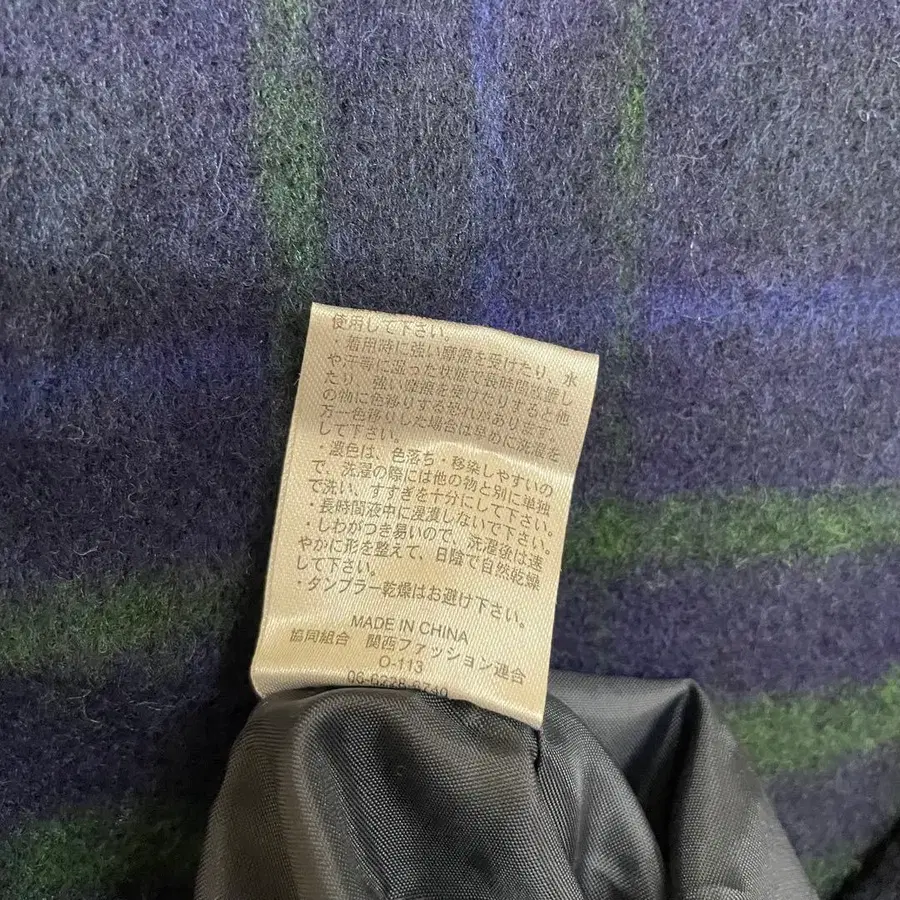 使用して下さい。
・着用時に強い摩擦を受けたり、水
や汗等に湿った状態で長時間放置し
たり、強い摩擦を受けたりすると他
の物に色移りする恐れがあります。
万一色移りした場合は早めに洗濯を
して下さい。
・濃色は、色落ち・移染しやすいの
で、洗濯の際には他の物と別に単独
で洗い、すすぎを十分にして下さい。
・長時間液中に浸漬しないで下さい。
・しわがつき易いので、洗濯後は速
やかに形を整えて、日陰で自然乾燥
して下さい。
・タンブラー乾燥はお避け下さい。
MADE IN CHINA
協同組合 関西ファッション連合
O-113
06-6228-